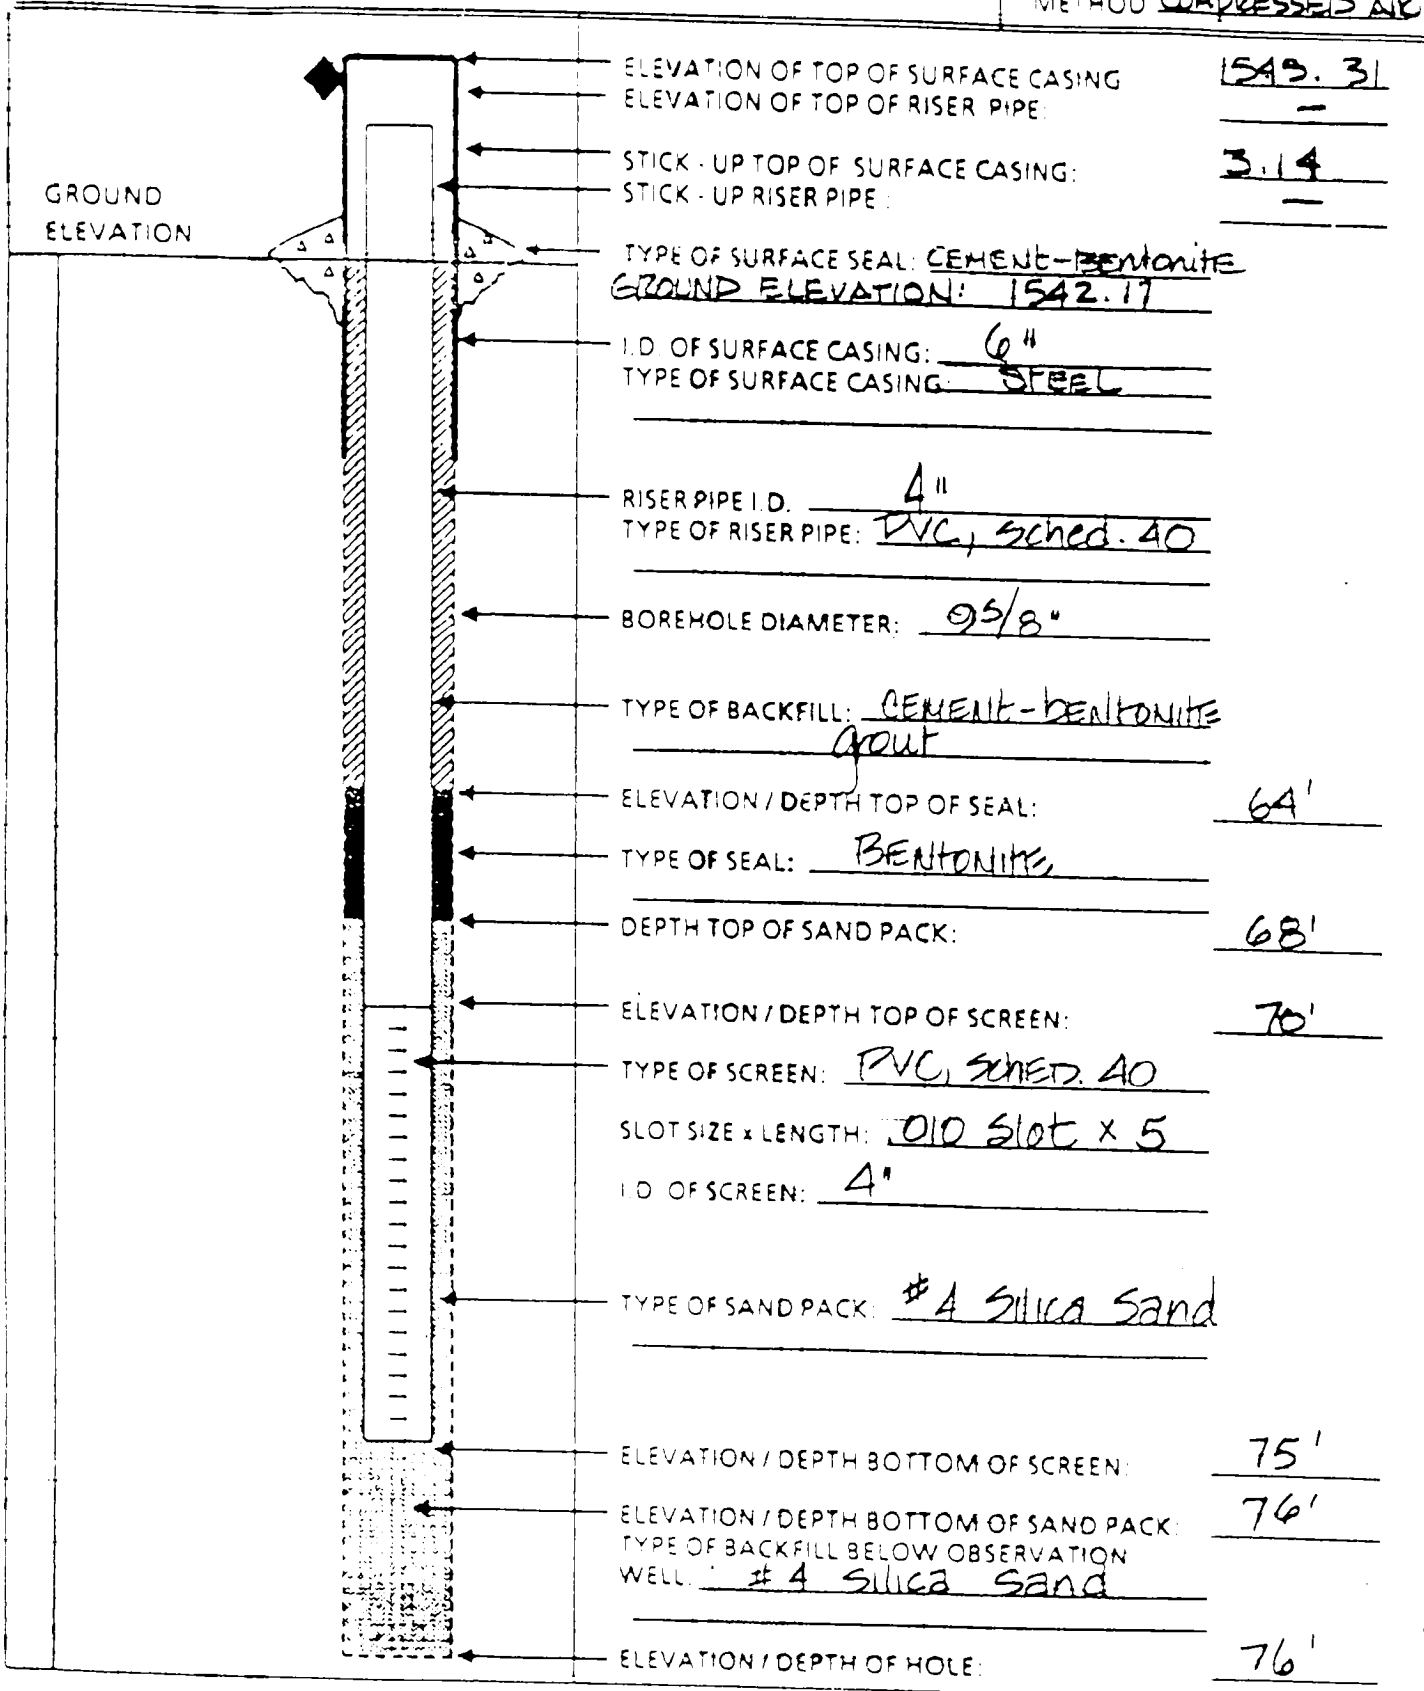 METHOD COMPRESSED AIR
ELEVATION OF TOP OF SURFACE CASING 1545.31
ELEVATION OF TOP OF RISER PIPE: –
STICK - UP TOP OF SURFACE CASING: 3.14
STICK - UP RISER PIPE : –
GROUND
ELEVATION
TYPE OF SURFACE SEAL: CEMENt-BENtonitE
GROUND ELEVATION: 1542.17
I.D. OF SURFACE CASING: 6"
TYPE OF SURFACE CASING: STEEL
RISER PIPE I.D. 4"
TYPE OF RISER PIPE: PVC, Sched. 40
BOREHOLE DIAMETER: 9 5/8"
TYPE OF BACKFILL: CEMENt-bENtONitE
grout
ELEVATION / DEPTH TOP OF SEAL: 64'
TYPE OF SEAL: BENtONitE
DEPTH TOP OF SAND PACK: 68'
ELEVATION / DEPTH TOP OF SCREEN: 70'
TYPE OF SCREEN: PVC, SChED. 40
SLOT SIZE x LENGTH: .010 Slot x 5
I.D. OF SCREEN: 4"
TYPE OF SAND PACK: #4 Silica Sand
ELEVATION / DEPTH BOTTOM OF SCREEN: 75'
ELEVATION / DEPTH BOTTOM OF SAND PACK: 76'
TYPE OF BACKFILL BELOW OBSERVATION
WELL: #4 Silica Sand
ELEVATION / DEPTH OF HOLE: 76'